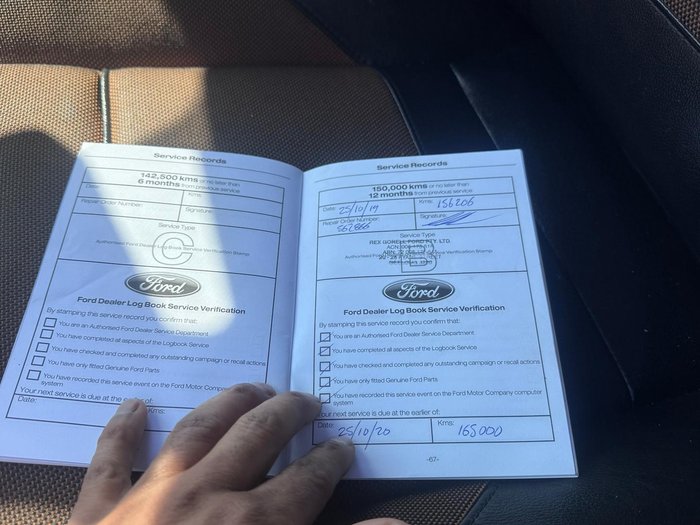 Service Records
142,500 kms or no later than
6 months from previous service
Date:
Kms:
Repair Order Number:
Signature:
Service Type
C
Authorised Ford Dealer Log Book Service Verification Stamp
Ford
Ford Dealer Log Book Service Verification
By stamping this service record you confirm that:
You are an Authorised Ford Dealer Service Department
You have completed all aspects of the Logbook Service
You have checked and completed any outstanding campaign or recall actions
You have only fitted Genuine Ford Parts
You have recorded this service event on the Ford Motor Company
system
Your next service is due at the earlier of:
Date:
Kms:
Service Records
150,000 kms or no later than
12 months from previous service
Date: 25/10/19
Kms: 156206
Repair Order Number:
562866
Signature:
Service Type
REX GORELL FORD PTY. LTD.
B
Ford
Ford Dealer Log Book Service Verification
By stamping this service record you confirm that:
You are an Authorised Ford Dealer Service Department
You have completed all aspects of the Logbook Service
You have checked and completed any outstanding campaign or recall actions
You have only fitted Genuine Ford Parts
You have recorded this service event on the Ford Motor Company computer
system
our next service is due at the earlier of:
Date: 25/10/20
Kms: 165000
-67-